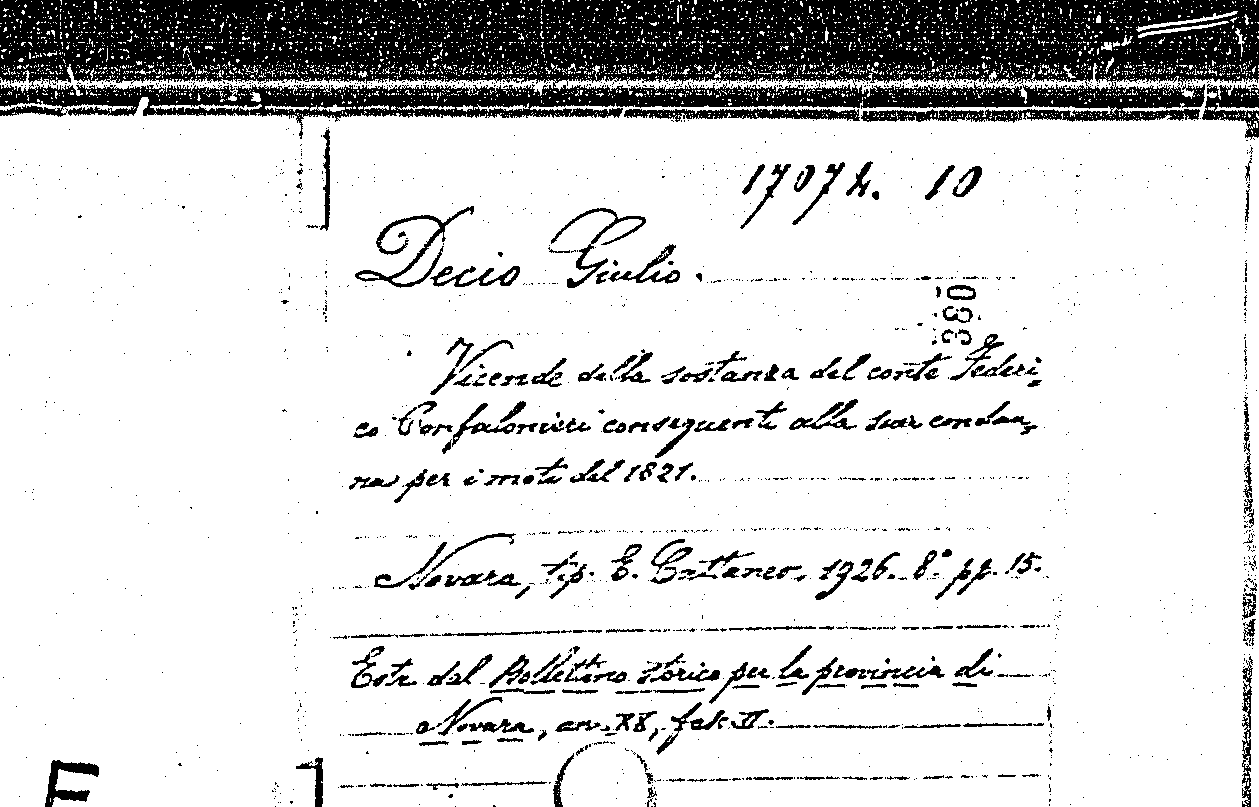 17072. 10
Decio Giulio.
380
Vicende della sostanza del conte Federi=
co Confalonieri conseguenti alla sua condan=
na per i moti del 1821.
Novara, tip. E. Cattaneo, 1926. 8° pp. 15.
Estr. dal Bollettino storico per la provincia di
Novara, an. XX, fasc. II.
E